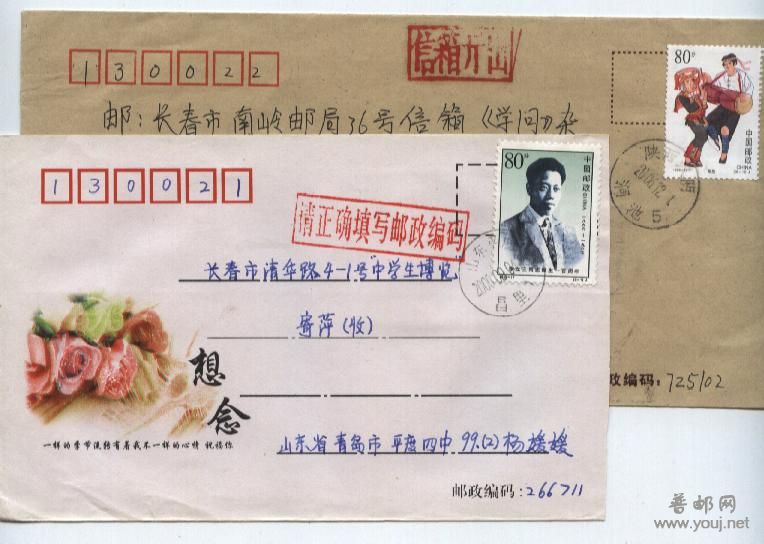 130022
信箱开出
邮：长春市南岭邮局36号信箱《学问》杂
80分
中国邮政
CHINA
5
政编码：725102
130021
请正确填写邮政编码
80分
中国邮政
CHINA
长春市清华路4-1号"中学生博览"
寄萍（收）
想念
一样的季节流转有着我不一样的心情 祝福你
山东省青岛市平度四中99.(2)杨媛媛
邮政编码：266711
普邮网
www.youj.net